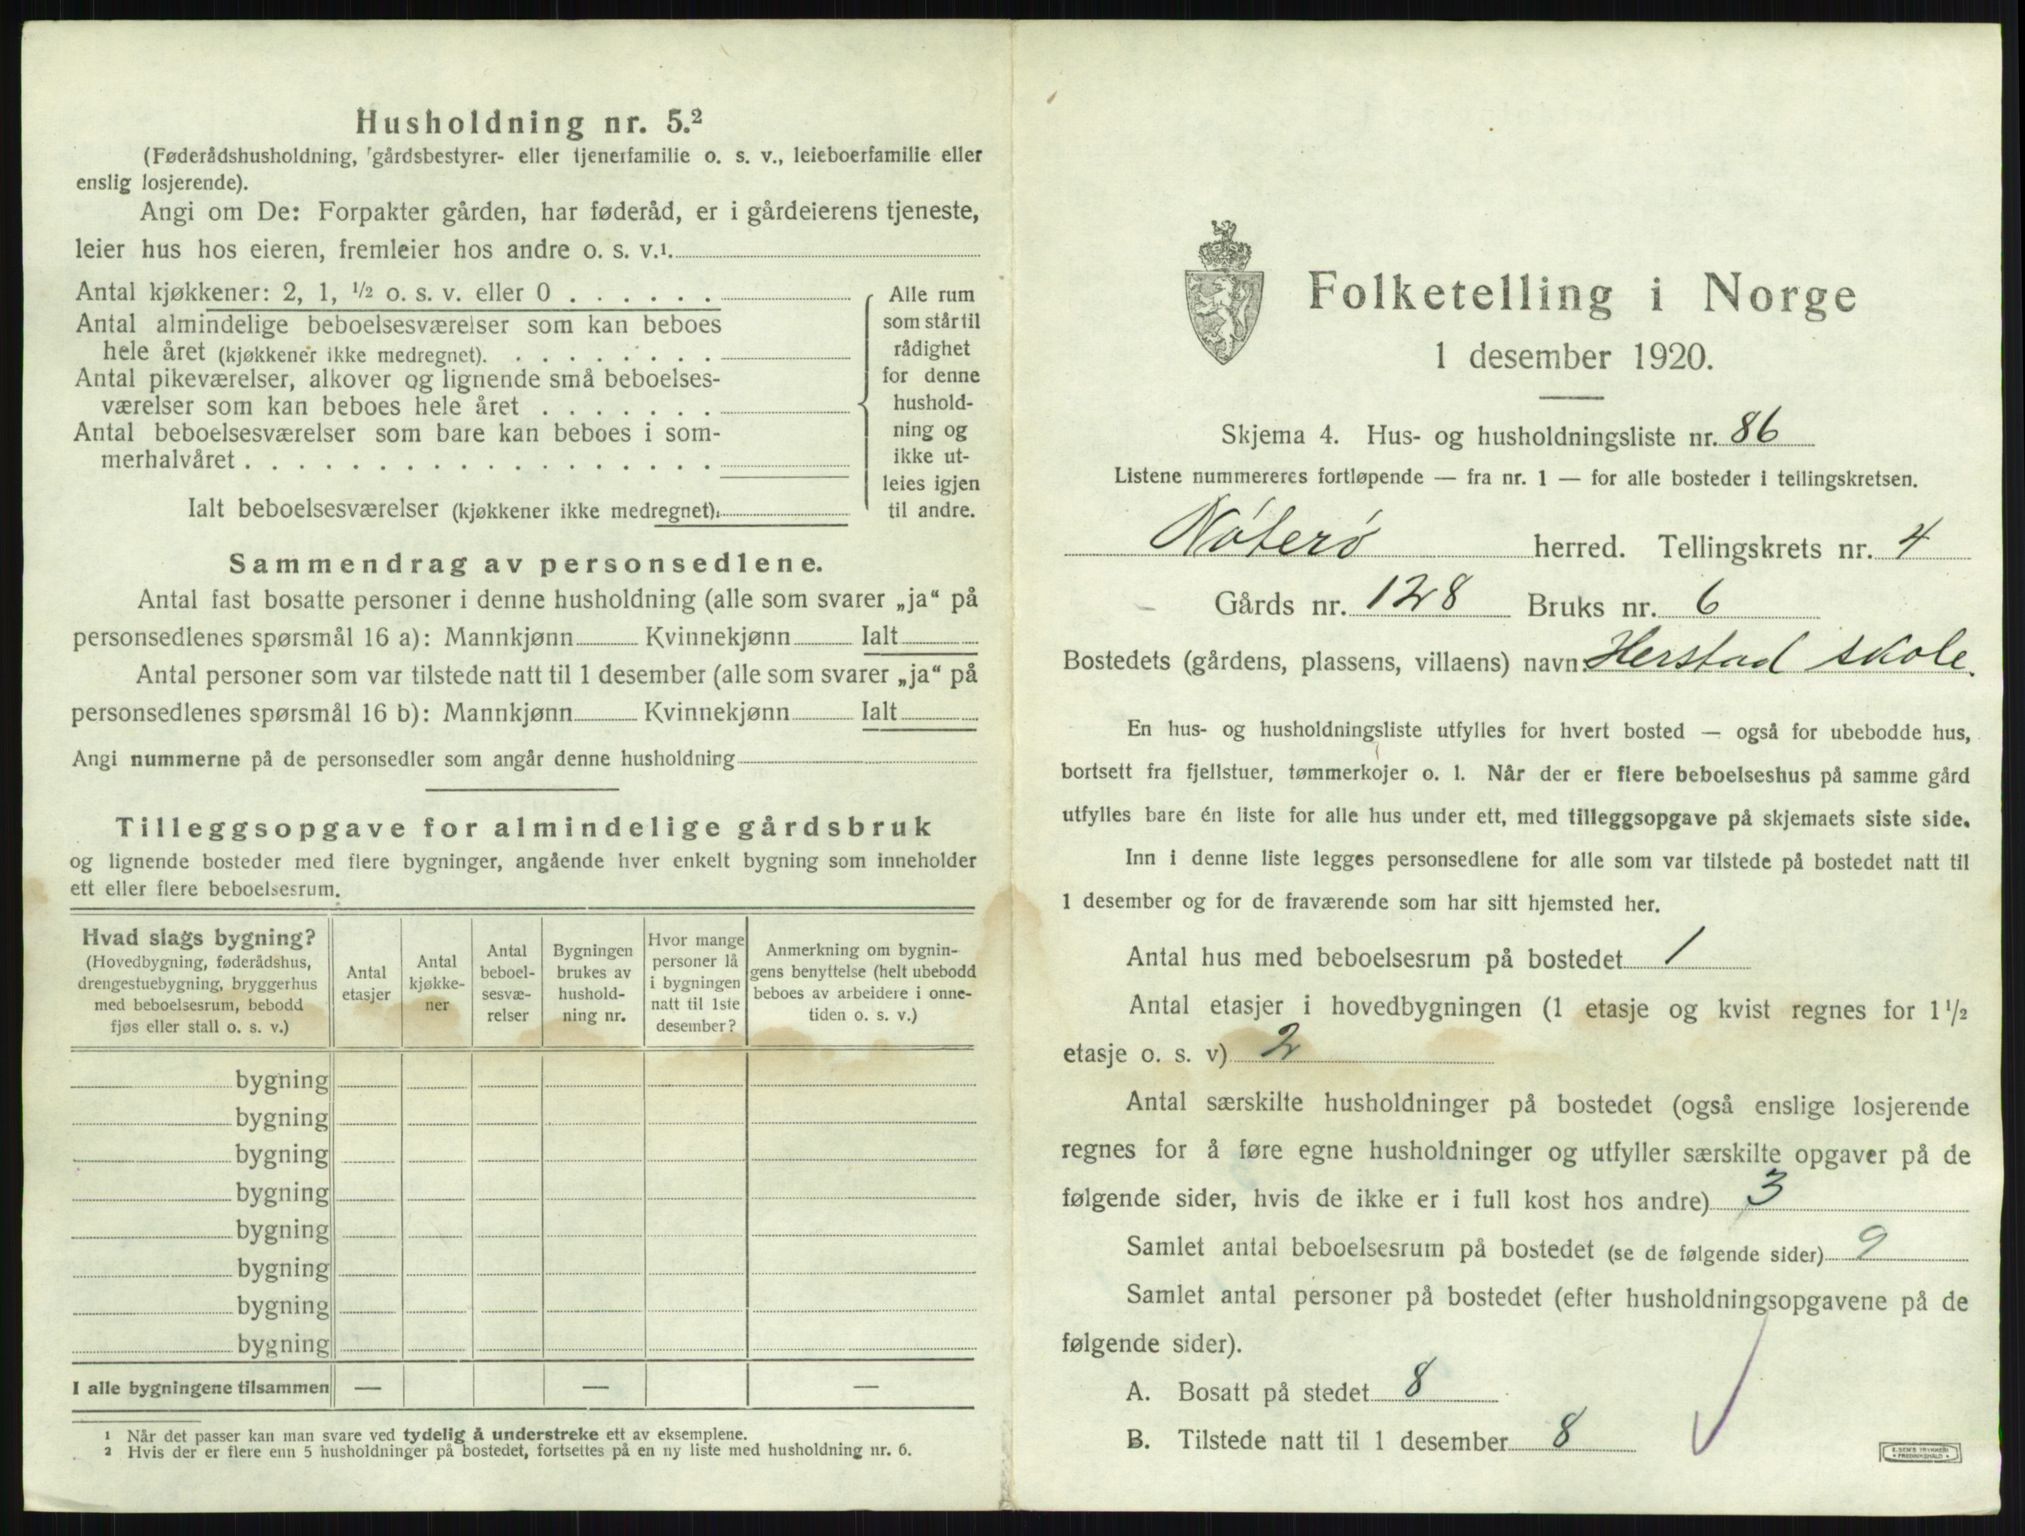 Husholdning nr. 5.²
(Føderådshusholdning, gårdsbestyrer- eller tjenerfamilie o. s. v., leieboerfamilie eller
enslig losjerende).
Angi om De: Forpakter gården, har føderåd, er i gårdeierens tjeneste,
leier hus hos eieren, fremleier hos andre o. s. v.¹.
Antal kjøkkener: 2, 1, ½ o. s. v. eller 0 . . . . . .
Antal almindelige beboelsesværelser som kan beboes
hele året (kjøkkener ikke medregnet). . . . . . . . .
Antal pikeværelser, alkover og lignende små beboelses-
værelser som kan beboes hele året . . . . . . .
Antal beboelsesværelser som bare kan beboes i som-
merhalvåret . . . . . . . . . . . . . . . . . .
Ialt beboelsesværelser (kjøkkener ikke medregnet).
Alle rum
som står til
rådighet
for denne
hushold-
ning og
ikke ut-
leies igjen
til andre.
Sammendrag av personsedlene.
Antal fast bosatte personer i denne husholdning (alle som svarer „ja“ på
personsedlenes spørsmål 16 a): Mannkjønn Kvinnekjønn Ialt
Antal personer som var tilstede natt til 1 desember (alle som svarer „ja“ på
personsedlenes spørsmål 16 b): Mannkjønn Kvinnekjønn Ialt
Angi nummerne på de personsedler som angår denne husholdning
Tilleggsopgave for almindelige gårdsbruk
og lignende bosteder med flere bygninger, angående hver enkelt bygning som inneholder
ett eller flere beboelsesrum.
Hvad slags bygning?
(Hovedbygning, føderådshus,
drengestuebygning, bryggerhus
med beboelsesrum, bebodd
fjøs eller stall o. s. v.)
Antal
etasjer
Antal
kjøkke-
ner
Antal
beboel-
sesvæ-
relser
Bygningen
brukes av
hushold-
ning nr.
Hvor mange
personer lå
i bygningen
natt til 1ste
desember?
Anmerkning om bygnin-
gens benyttelse (helt ubebodd
beboes av arbeidere i onne-
tiden o. s. v.)
bygning
bygning
bygning
bygning
bygning
bygning
bygning
bygning
I alle bygningene tilsammen — — —
¹ Når det passer kan man svare ved tydelig å understreke ett av eksemplene.
² Hvis der er flere enn 5 husholdninger på bostedet, fortsettes på en ny liste med husholdning nr. 6.
Folketelling i Norge
1 desember 1920.
Skjema 4. Hus- og husholdningsliste nr. 86
Listene nummereres fortløpende — fra nr. 1 — for alle bosteder i tellingskretsen.
Nøterø herred. Tellingskrets nr. 4
Gårds nr. 128 Bruks nr. 6
Bostedets (gårdens, plassens, villaens) navn Herstad skole.
En hus- og husholdningsliste utfylles for hvert bosted — også for ubebodde hus,
bortsett fra fjellstuer, tømmerkojer o. l. Når der er flere beboelseshus på samme gård
utfylles bare én liste for alle hus under ett, med tilleggsopgave på skjemaets siste side.
Inn i denne liste legges personsedlene for alle som var tilstede på bostedet natt til
1 desember og for de fraværende som har sitt hjemsted her.
Antal hus med beboelsesrum på bostedet 1
Antal etasjer i hovedbygningen (1 etasje og kvist regnes for 1½
etasje o. s. v) 2
Antal særskilte husholdninger på bostedet (også enslige losjerende
regnes for å føre egne husholdninger og utfyller særskilte opgaver på de
følgende sider, hvis de ikke er i full kost hos andre) 3
Samlet antal beboelsesrum på bostedet (se de følgende sider) 9
Samlet antal personer på bostedet (efter husholdningsopgavene på de
følgende sider).
A. Bosatt på stedet 8
B. Tilstede natt til 1 desember 8